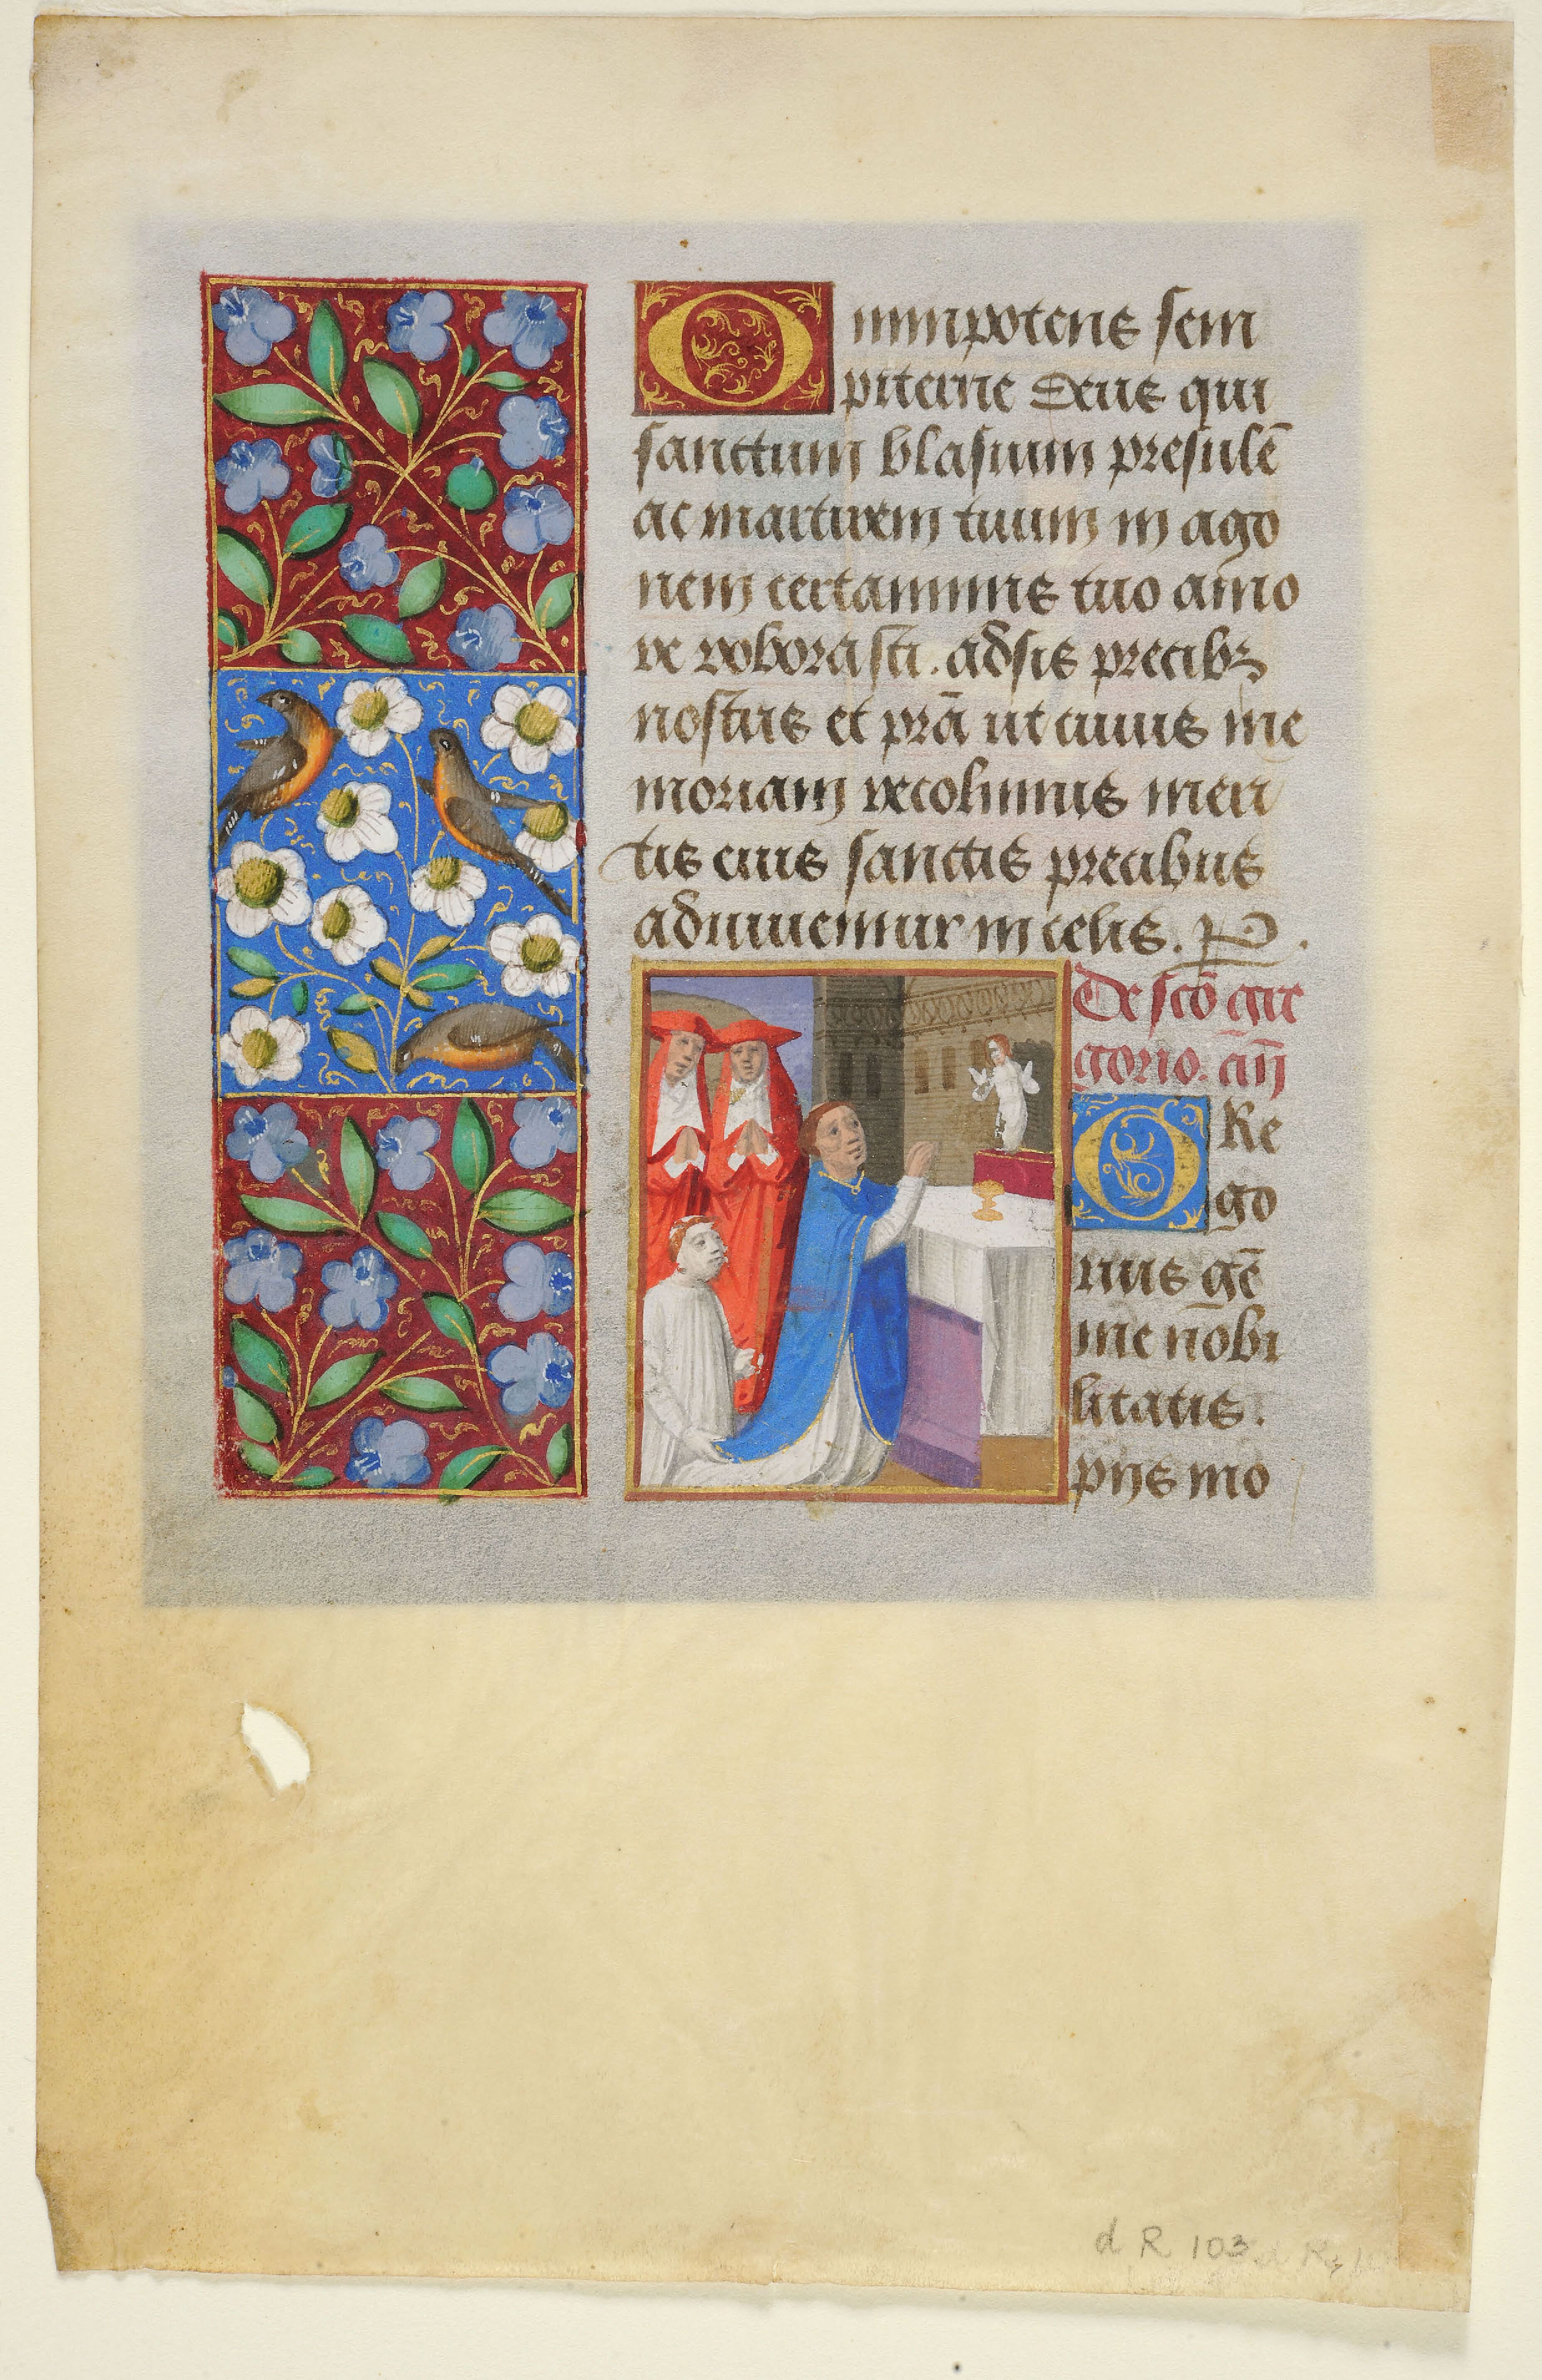 Omnipotens sem
piterne Deus qui
sanctum blasium presulē
ac martirem tuum in ago
nem certaminis tuo amo
re roborasti. adsis precibꝫ
nostris et prā ut cuius me
moriam recolimus meri
tis eius sanctis precibus
adiuuemur in celis. P.
De scō gre
gorio. añ
GRe
go
rius gē
me nobi
litatis.
pijs mo
d R 103